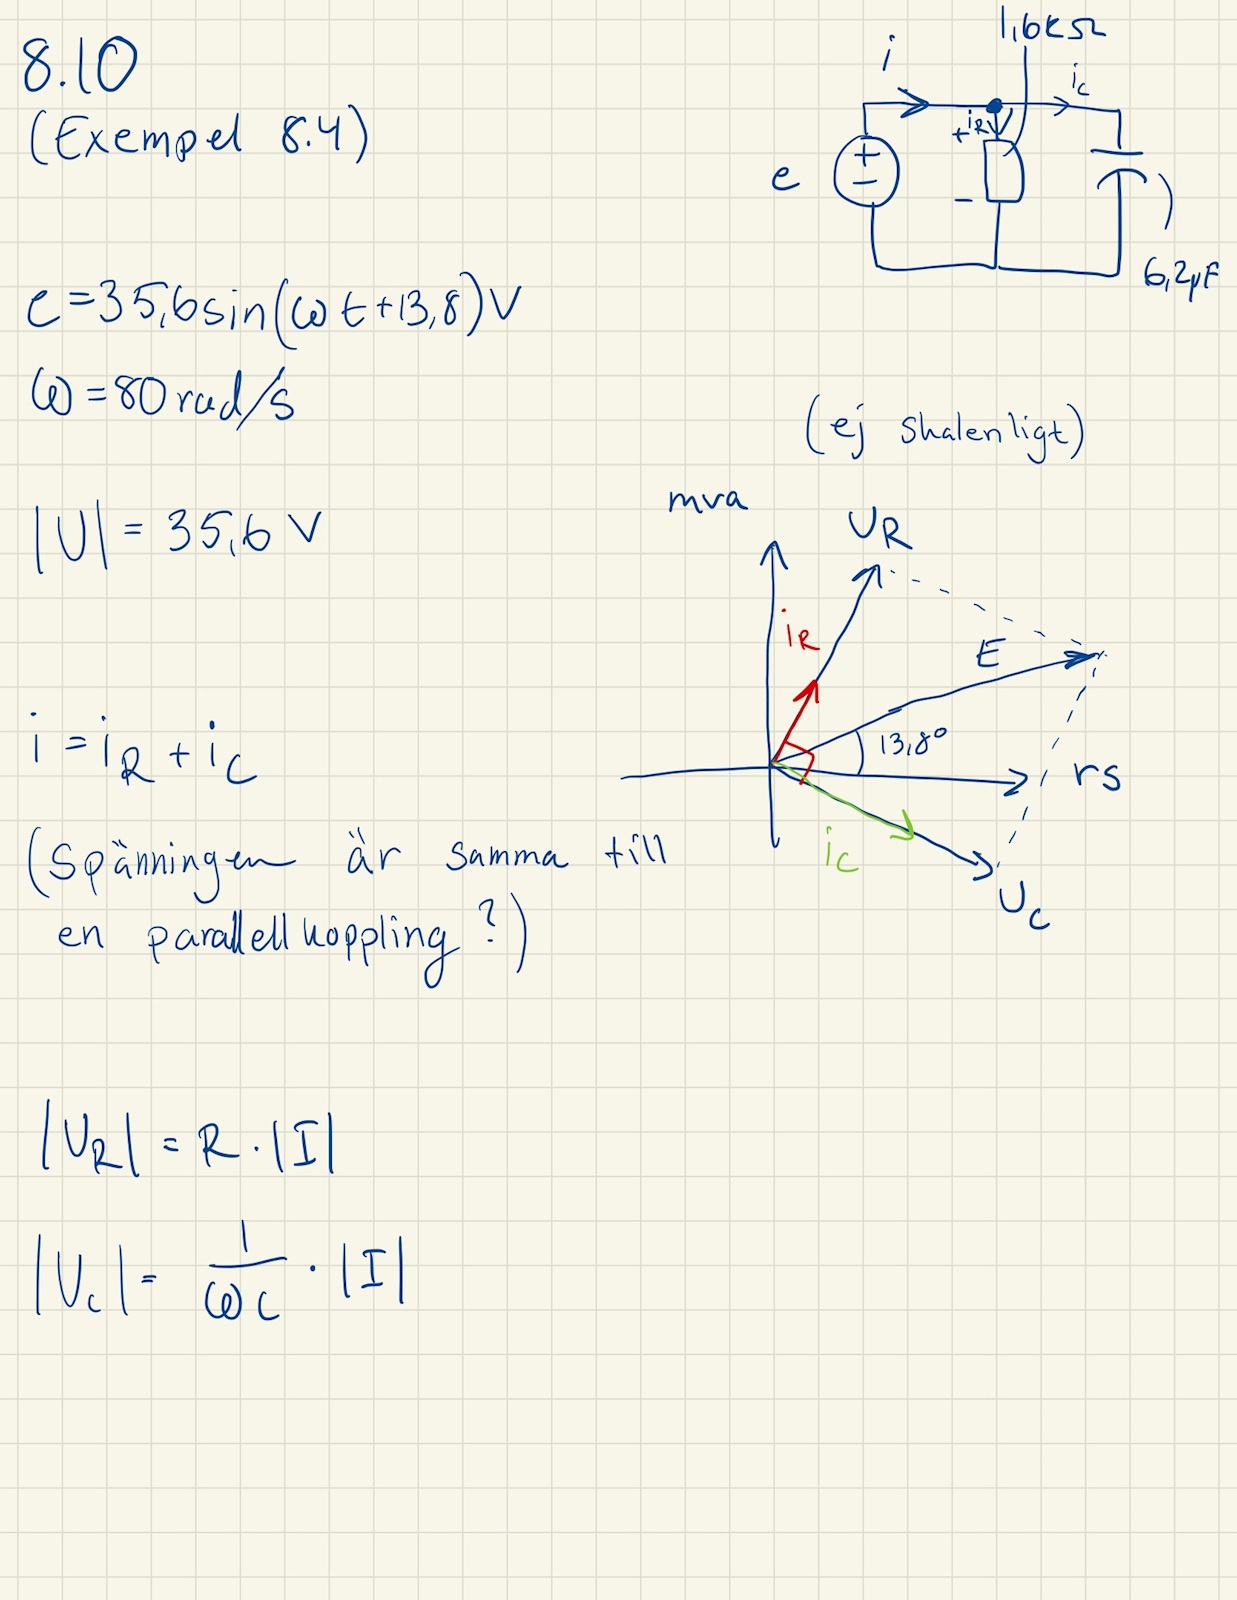 8.10
(Exempel 8.4)
1,6kΩ
i
i_C
+ i_R
e
+
-
-
6,2μF
e=35,6sin(ωt+13,8)V
ω=80rad/s
(ej skalenligt)
|U| = 35,6 V
mva
U_R
i_R
E
13,8°
rs
i_C
U_C
i = i_R + i_C
(Spänningen är samma till
en parallellkoppling?)
|U_R| = R · |I|
|U_C| = 1/ωC · |I|